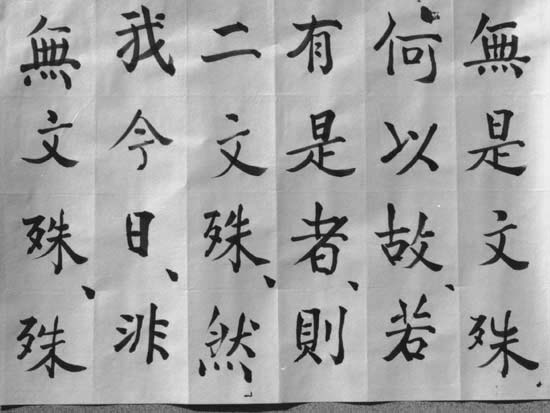 無是文殊
何以故、若
有是者、則
二文殊、然
我今日、非
無文殊、殊